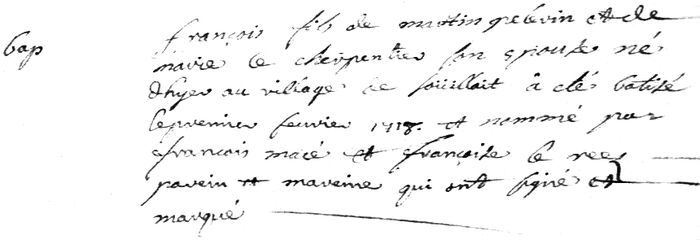 bap
françois fils de martin pelerin et de
marie le cherpentier son epouse né
dhyer au village de souillait à etés batisé
le premier feuvrier 1718. et nommé par
françois macé et françoise le ree
parein et mareine qui ont signé et
marqué